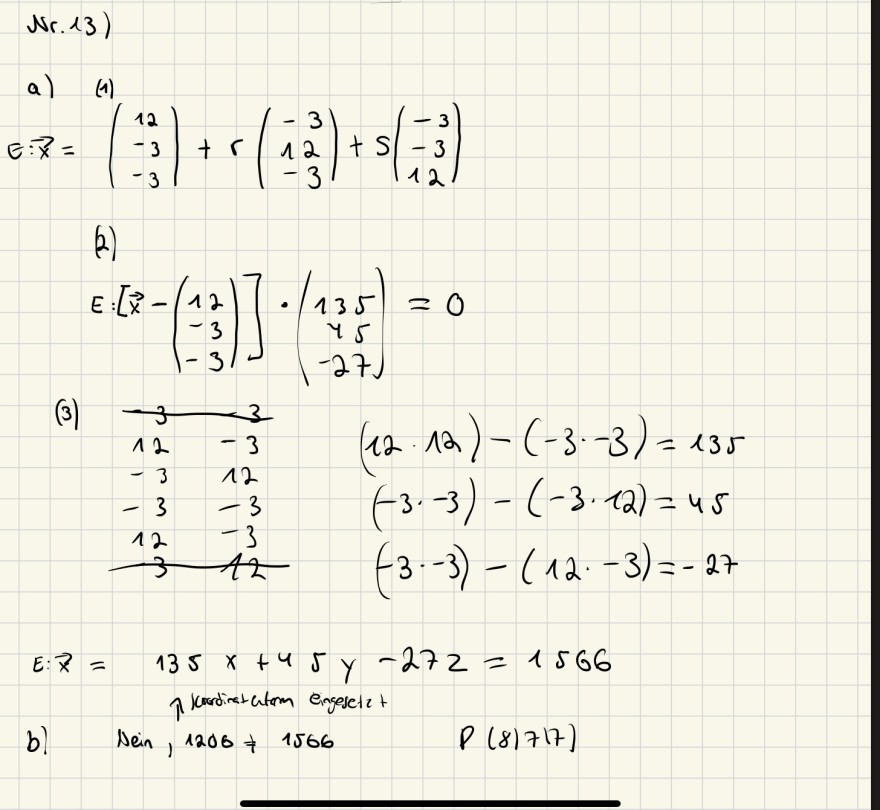 Nr. 13)
a) (1)
E: x⃗ = (12 -3 -3) + r (-3 12 -3) + s (-3 -3 12)
(2)
E: [x⃗ - (12 -3 -3)] · (135 45 -27) = 0
(3)
-3 -3
12 -3 (12 · 12) - (-3 · -3) = 135
-3 12
-3 -3 (-3 · -3) - (-3 · 12) = 45
12 -3
-3 12 (-3 · -3) - (12 · -3) = -27
E: x⃗ = 135 x + 45 y - 27 z = 1566
↑ Koordinatenform eingesetzt
b) Nein, 1206 ≠ 1566 P (8|7|7)